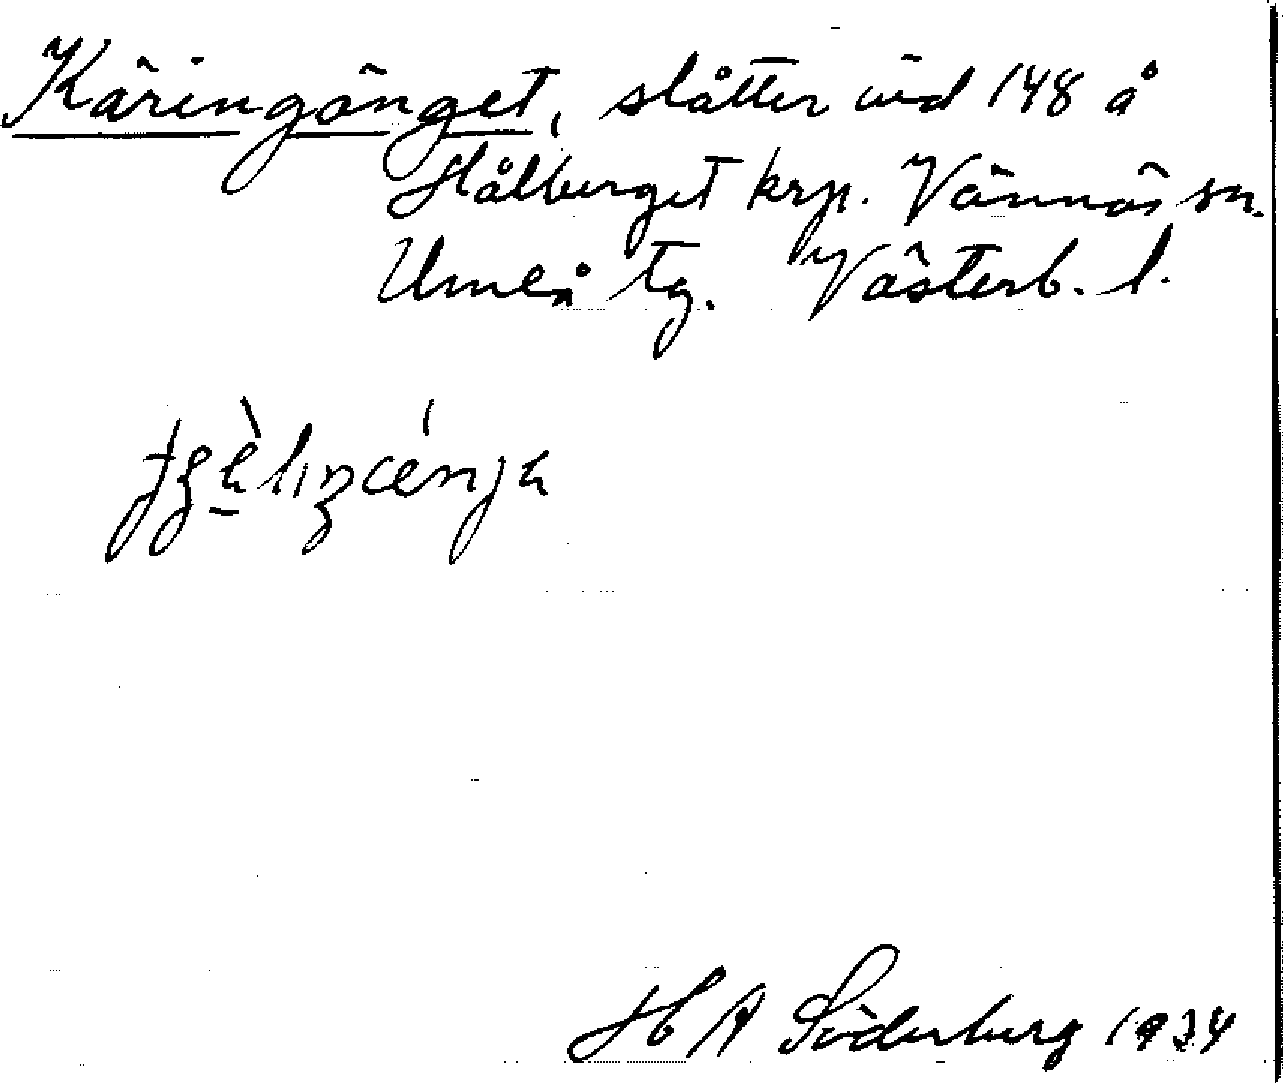 Käringänget, slåtter vid 148 å
Hålberget krp. Vännäs sn.
Umeå tg. Västerb. l.
H A Söderberg 1934